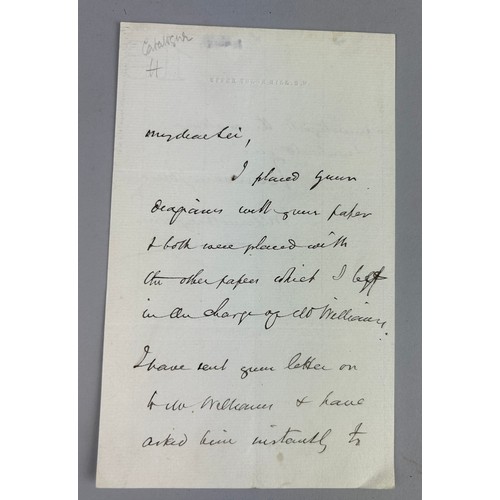 Catalogue
H
My dear Sir,
I placed your
diagrams with your paper
& both were placed with
the other papers which I left
in the charge of Mr Williams.
I have sent your letter on
to Mr. Williams & have
asked him instantly to